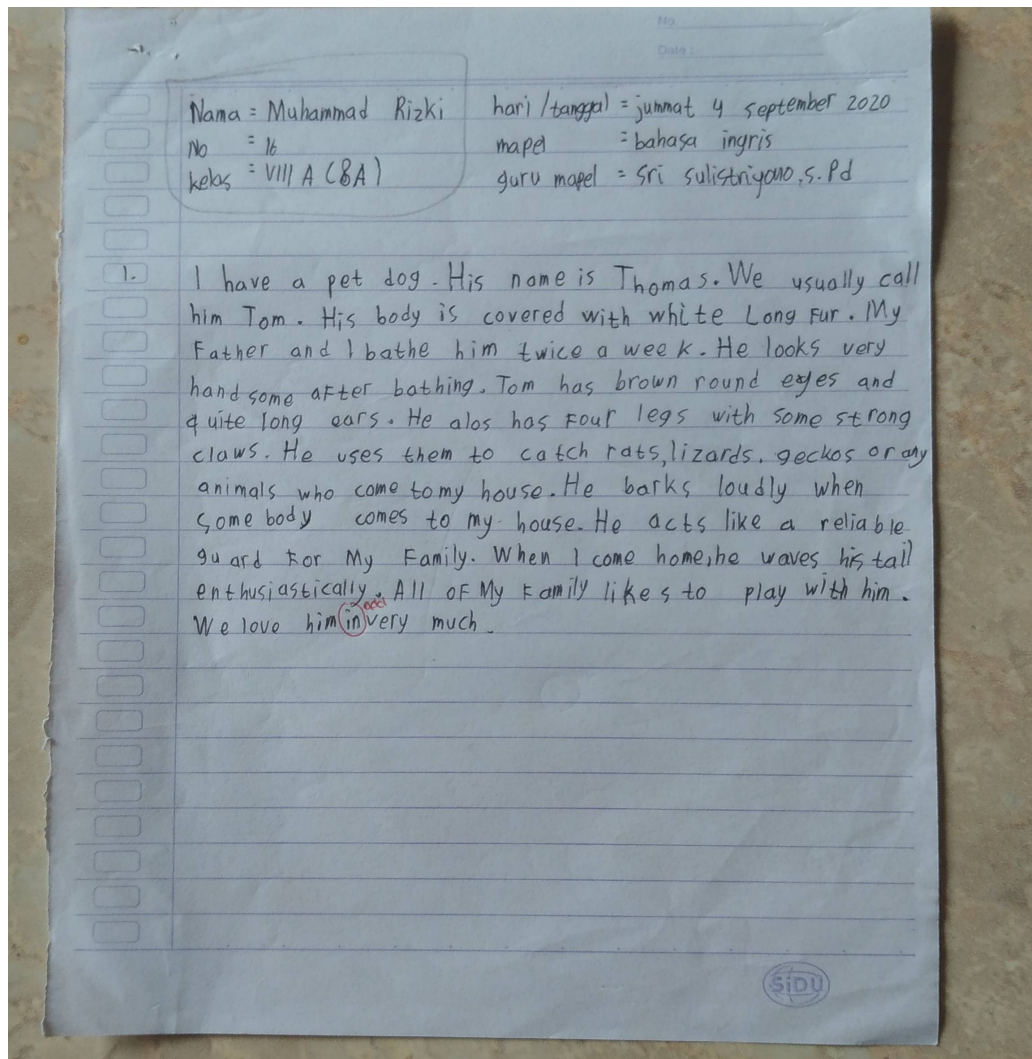 No
Date :
Nama = Muhammad Rizki hari / tanggal = jummat 4 september 2020
No = 16 mapel = bahasa ingris
kelas = VIII A (8A) guru mapel = Sri sulistriyono, S.Pd
1. I have a pet dog. His name is Thomas. We usually call
him Tom. His body is covered with white Long Fur. My
Father and I bathe him twice a week. He looks very
handsome aFter bathing. Tom has brown round eyes and
quite long ears. He alos has Four legs with some strong
claws. He uses them to catch rats, lizards, geckos or any
animals who come to my house. He barks loudly when
somebody comes to my house. He acts like a reliable
guard For My Family. When I come home, he waves his tail
enthusiastically. All oF My Family likes to play with him.
We love him in very much.
SiDU